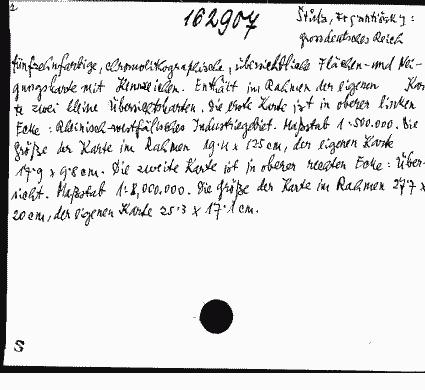 2
162907
Štůla, František J:
grossdeutsches Reich
fünfzehnfarbige, chromolithographische, übersichtliche Flächen- und Nei-
gungskarte mit Kennzeichen. Enthält im Rahmen der eigenen Kar
te zwei kleine Übersichtskarten. Die erste Karte ist in oberer linken
Ecke: Rheinisch-westfälisches Industriegebiet. Maßstab 1:500.000. Die
Größe der Karte im Rahmen 19·11 x 12·5 cm, der eigenen Karte
17·9 x 9·8 cm. Die zweite Karte ist in oberer rechten Ecke: Über-
sicht. Maßstab 1:8,000.000. Die Größe der Karte im Rahmen 27·7 x
20 cm, der eigenen Karte 25·3 x 17·1 cm.
S